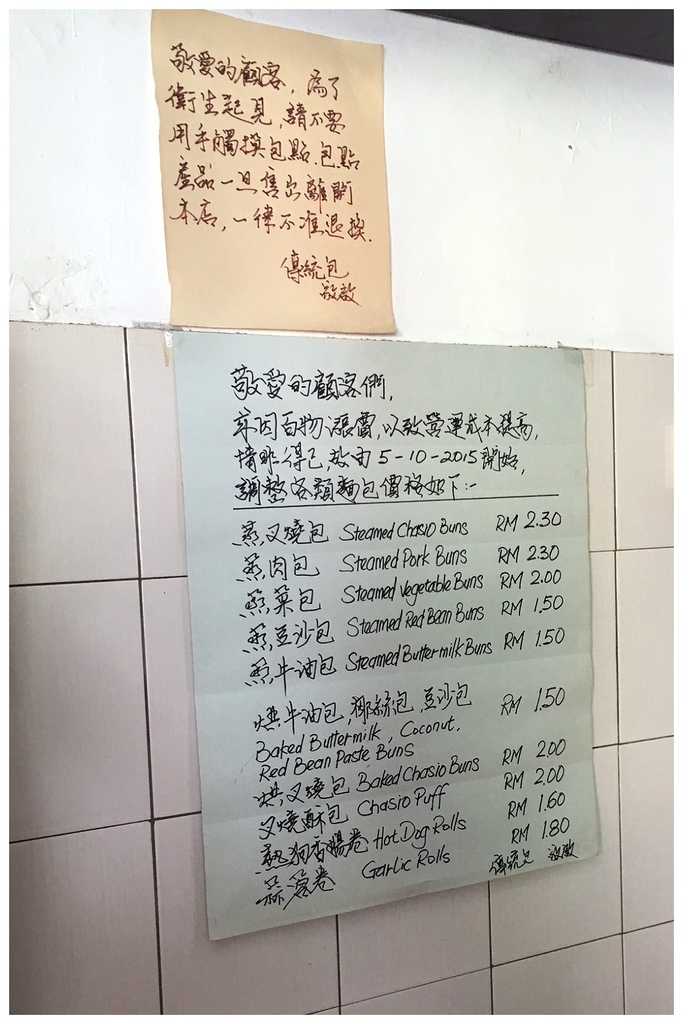 敬愛的顧客，為了
衛生起見，請不要
用手觸摸包點.包點
產品一旦售出離開
本店，一律不准退換.
傳統包
敬啟
敬愛的顧客們,
年因百物漲價,以致營運成本提高,
情非得已,故由5-10-2015開始,
調整各類麵包價格如下:-
蒸叉燒包 Steamed Chasio Buns RM 2.30
蒸肉包 Steamed Pork Buns RM 2.30
蒸菜包 Steamed Vegetable Buns RM 2.00
蒸豆沙包 Steamed Red Bean Buns RM 1.50
蒸牛油包 Steamed Buttermilk Buns RM 1.50
烘牛油包,椰絲包,豆沙包 RM 1.50
Baked Buttermilk, Coconut,
Red Bean Paste Buns
烘叉燒包 Baked Chasio Buns RM 2.00
叉燒酥包 Chasio Puff RM 2.00
熱狗香腸卷 Hot Dog Rolls RM 1.60
蒜蓉卷 Garlic Rolls RM 1.80
傳統包 敬啟